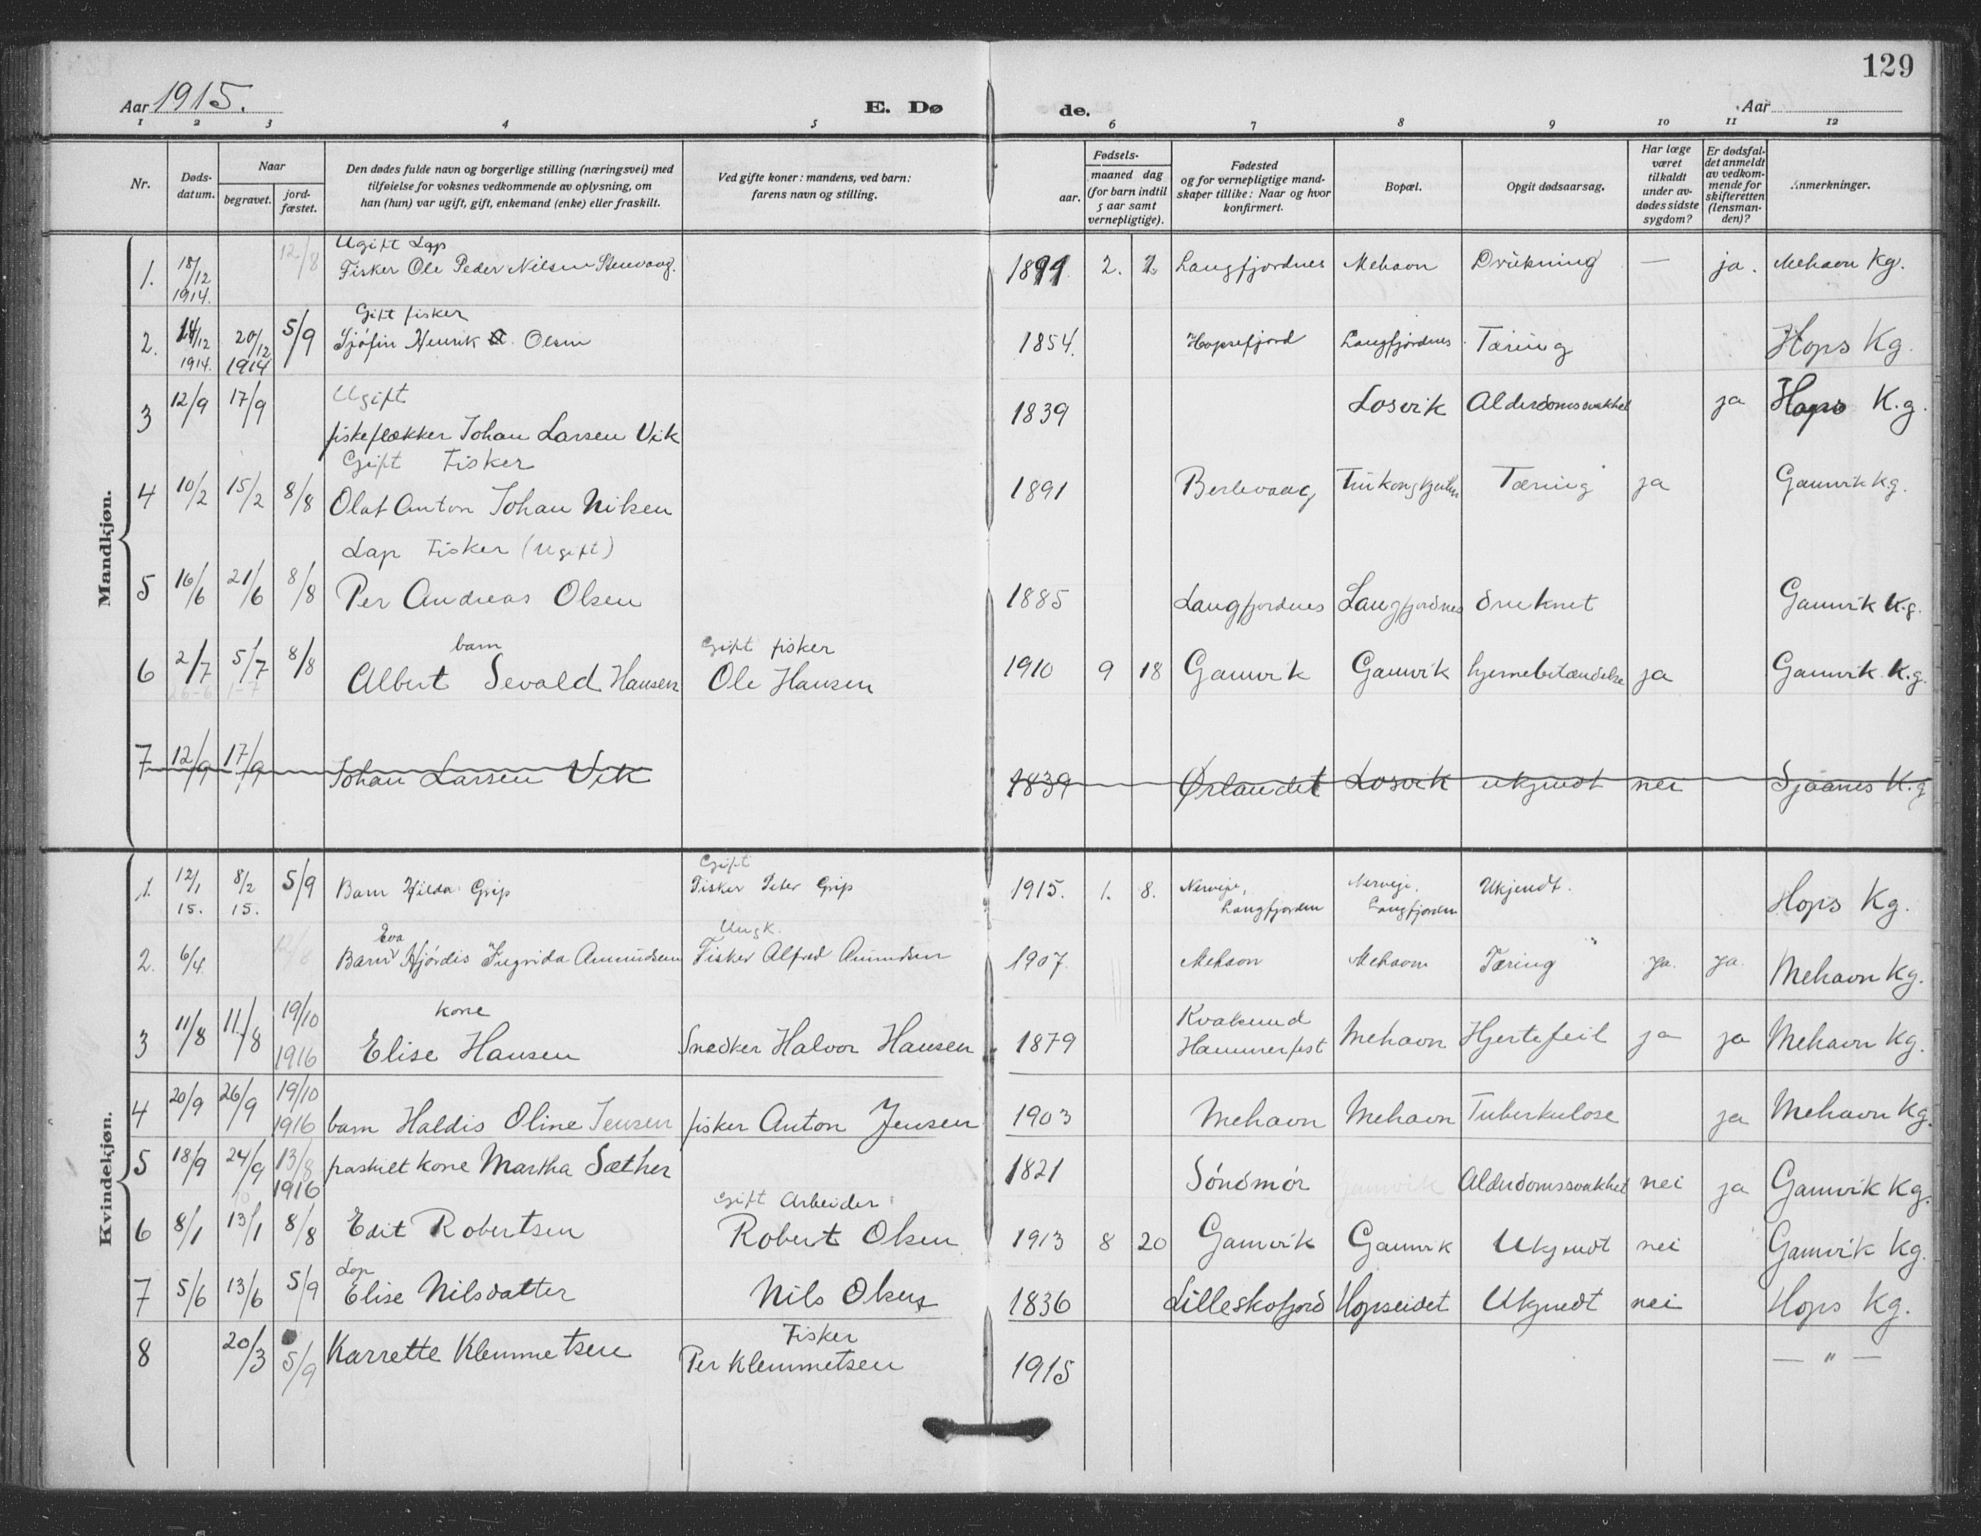 129
Aar 1915. E. Dø de. Aar
1 2 3 4 5 6 7 8 9 10 11 12
Nr. Døds-datum. Naar begravet. jord-fæstet. Den dødes fulde navn og borgerlige stilling (næringsvei) med tilføielse for voksnes vedkommende av oplysning, om han (hun) var ugift, gift, enkemand (enke) eller fraskilt. Ved gifte koner: mandens, ved barn: farens navn og stilling. Fødsels- aar. maaned dag (for barn indtil 5 aar samt vernepligtige). Fødested og for vernepligtige mand-skaper tillike: Naar og hvor konfirmert. Bopæl. Opgit dødsaarsag. Har læge været tilkaldt under av-dødes sidste sygdom? Er dødsfal-det anmeldt av vedkom-mende for skifteretten (lensman-den)? Anmerkninger.
Mandkjøn.
Ugift Lap
1. 18/12 1914. 12/8 Fisker Ole Peder Nilsen Stenvaag. 2. Langfjordnes Mehavn Drukning — ja. Mehavn Kg.
Gift fisker
2. 14/12 1914. 20/12 1914 5/9 Sjøfin Henrik Olsen 1854. Hopsefjord Langfjordnes Tæring Hops Kg.
Ugift
3 12/9 17/9 fiskeflækker Johan Larsen Vik 1839 Losvik Alderdomssvakhet ja Hops K.g.
Gift Fisker
4 10/2 15/2 8/8 Olaf Anton Johan Nilsen 1891 Berlevaag Tæring ja Gamvik Kg.
Lap Fisker (Ugift)
5 16/6 21/6 8/8 Per Andreas Olsen 1885 Langfjordnes Langfjordnes druknet Gamvik K.g.
barn Gift fisker
6 2/7 5/7 8/8 Albert Sevald Hansen Ole Hansen 1910 9 18 Gamvik Gamvik hjernebetændelse ja Gamvik K.g.
26-6 1-7
7 12/9 17/9 Johan Larsen Vik 1839 Ørlandet Losvik ukjendt nei Sjaanes K.g
Kvindekjøn.
Gift
1. 12/1 15. 8/2 15. 5/9 Barn Hilda Grip Fisker Peter Grip 1915. 1. 8. Nerveje, Langfjorden Nerveje, Langfjorden Ukjendt. Hops Kg.
Eva Ungk.
2. 6/4. 12/8 Barn Hjørdis Ingrida Amundsen Fisker Alfred Amundsen 1907. Mehavn Mehavn Tæring ja. ja. Mehavn Kg.
kone
3 11/8 11/8 19/10 1916 Elise Hansen Snedker Halvor Hansen 1879 Kvalsund Hammerfest Mehavn Hjertefeil ja ja Mehavn Kg.
4 20/9 26/9 19/10 1916 barn Haldis Oline Jensen fisker Anton Jensen 1903 Mehavn Mehavn Tuberkulose ja Mehavn Kg.
5 18/9 24/9 13/8 1916 fraskilt kone Martha Sæther 1821 Søndmør Gamvik Alderdomssvakhet nei ja Gamvik Kg.
Gift Arbeider
6 8/1 13/1 8/8 Edit Robertsen Robert Olsen 1913 8 20 Gamvik Gamvik Ukjendt nei Gamvik Kg.
Lap
7 5/6 13/6 5/9 Elise Nilsdatter Nils Olsen 1836 Lilleskofjord Hopseidet Ukjendt nei Hops Kg.
Fisker
8 20/3 5/9 Karrette Klemmetsen Per Klemmetsen 1915 — " —